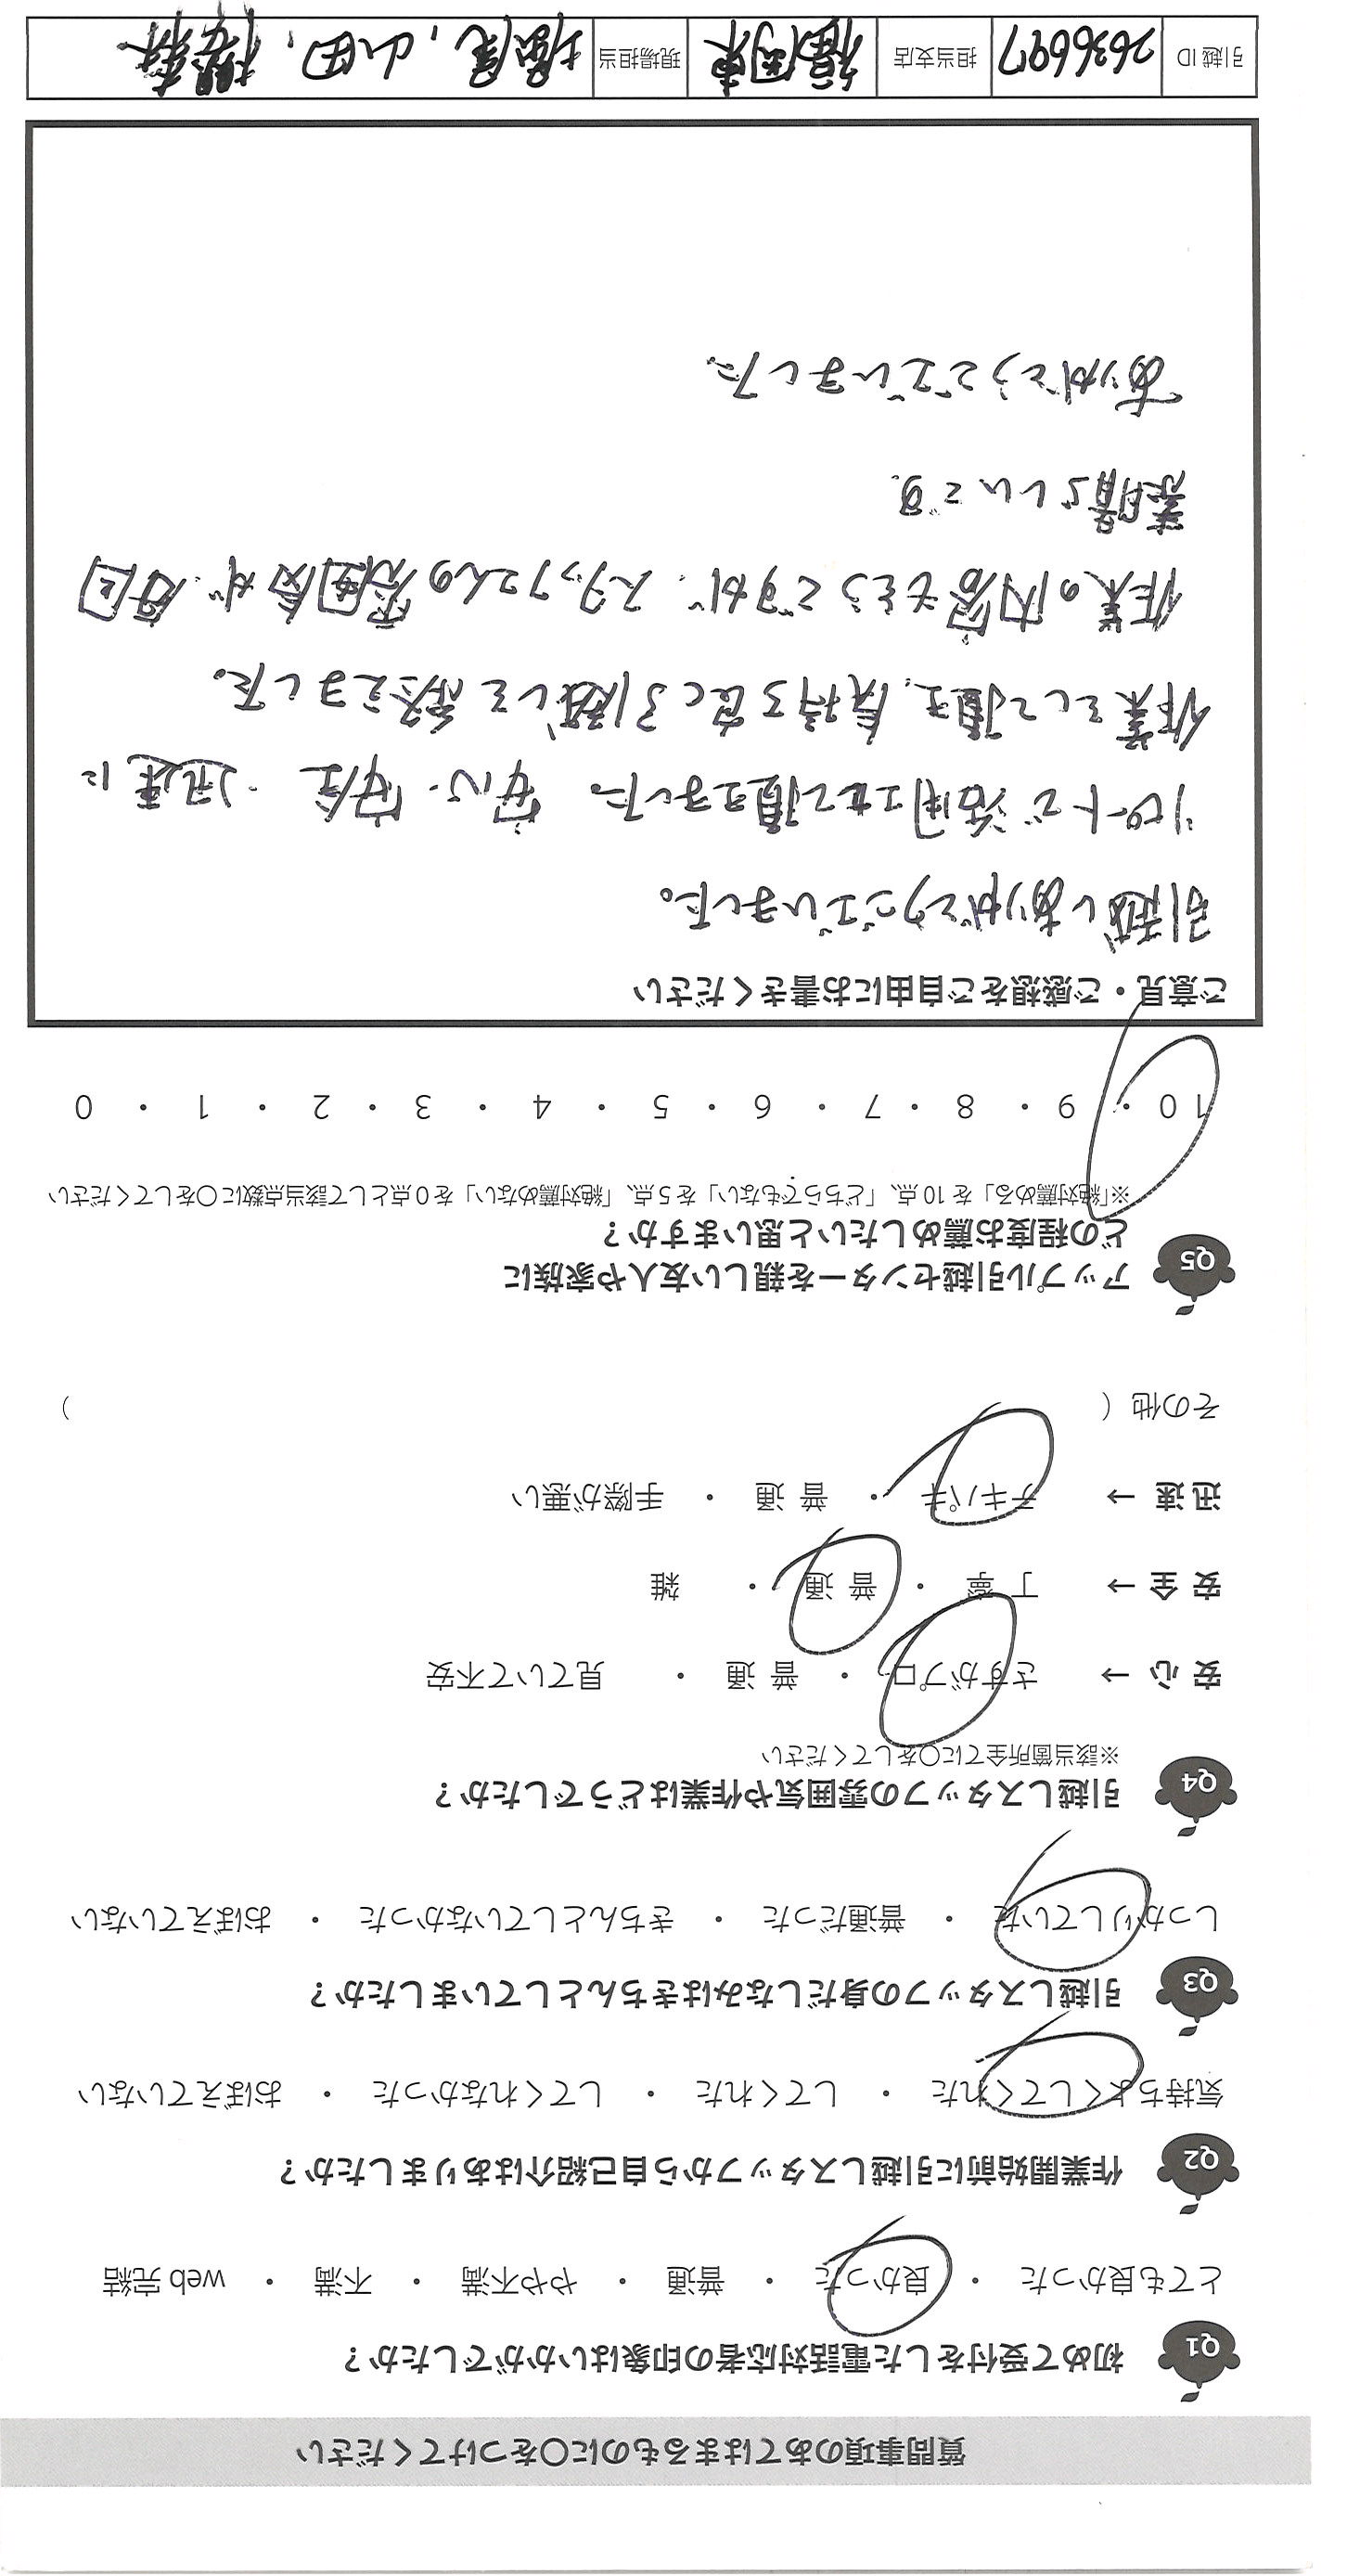 質問事項のあてはまるものに○をつけてください
Q1 初めて受付をした電話対応者の印象はいかがでしたか？
とても良かった ・ 良かった ・ 普通 ・ やや不満 ・ 不満 ・ web 完結
Q2 作業開始前に引越しスタッフから自己紹介はありましたか？
気持ちよくしてくれた ・ してくれた ・ してくれなかった ・ おぼえていない
Q3 引越しスタッフの身だしなみはきちんとしていましたか？
しっかりしていた ・ 普通だった ・ きちんとしていなかった ・ おぼえていない
Q4 引越しスタッフの雰囲気や作業はどうでしたか？
※該当箇所全てに○をしてください
安 心 → さすがプロ ・ 普 通 ・ 見ていて不安
安 全 → 丁 寧 ・ 普 通 ・ 雑
迅 速 → テキパキ ・ 普 通 ・ 手際が悪い
その他（ ）
Q5 アップル引越センターを親しい友人や家族に
どの程度お薦めしたいと思いますか？
※「絶対薦める」を 10 点、「どちらでもない」を 5 点、「絶対薦めない」を 0 点として該当点数に○をしてください
10 ・ 9 ・ 8 ・ 7 ・ 6 ・ 5 ・ 4 ・ 3 ・ 2 ・ 1 ・ 0
ご意見・ご感想をご自由にお書きください
引越しありがとうございました。
リピートで活用させて頂きました。安心・安全・迅速に
作業をして頂き、気持ち良く引越しを終えました。
作業の内容もそうですが、スタッフさんの雰囲気が毎回
素晴らしいです。
ありがとうございました。
引越 ID 2636697 担当支店 福岡東 現場担当 塩尾、山田、